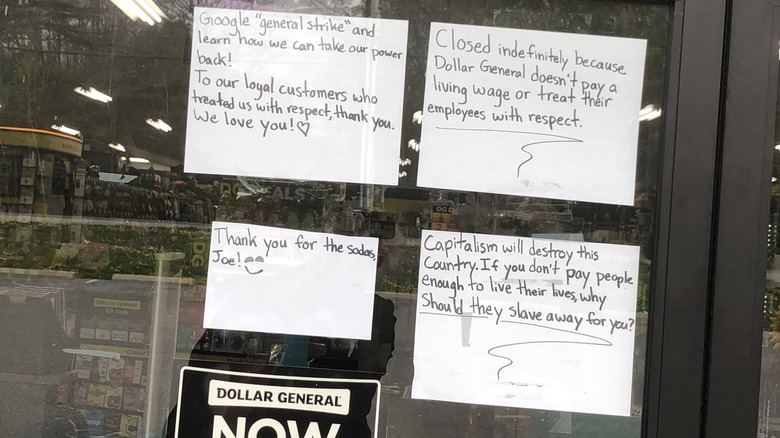 Google "general strike" and
learn how we can take our power
back!
To our loyal customers who
treated us with respect, thank you.
We love you!♡
Closed indefinitely because
Dollar General doesn't pay a
living wage or treat their
employees with respect.
Thank you for the sodas,
Joe!
Capitalism will destroy this
Country. If you don't pay people
enough to live their lives, why
Should they slave away for you?
DOLLAR GENERAL
NOW